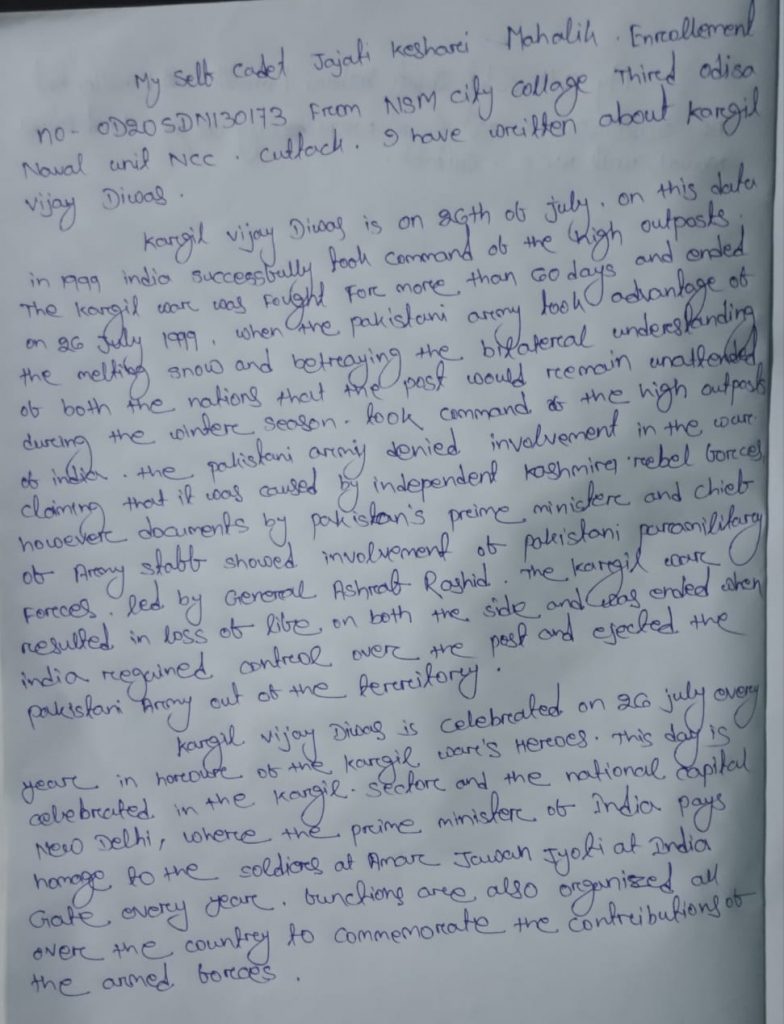 My Self Cadet Jajati Kesharei Mahalik. Enrcollement
no- OD20SDN130173 From NSM city collage Thired odisa
Naval unit NCC. Cuttack. I have wreitten about kargil
vijay Diwas.
Kargil vijay Diwas is on 26th of July. on this data
in 1999 india successfully took command of the high outposts.
The kargil war was fought Forc more than 60 days and ended
on 26 July 1999. when the pakistani army took advantage of
the melting snow and betreaying the bilaterecal understanding
of both the nations that the post would rcemain unattended
durcing the winterc season. took command of the high outposts
of india. the pakistani army denied involvement in the warc
claiming that it was caused by independent kashmirci rcebel forcces
howeverc documents by pakistan's prcime ministerc and chief
of Army staff showed involvement of pakistani paramilitarcy
Forcces. led by General Ashraf Rashid. The kargil warc
resulted in loss of life on both the side and was ended when
india regained contrcol overc the post and ejected the
pakistani Army out of the tercrcitorcy.
Kargil vijay Diwas is celebrcated on 26 july every
yearc in honourc of the kargil warc's Hercoes. This day is
celebrcated in the kargil. sectorc and the national capital
New Delhi, wherce the prcime ministerc of India pays
homage to the soldiers at Amarc Jawan Jyoti at India
Gate every yearc. functions arce also organized all
overc the countrcy to commemorcate the contrcibutions of
the armed forcces.